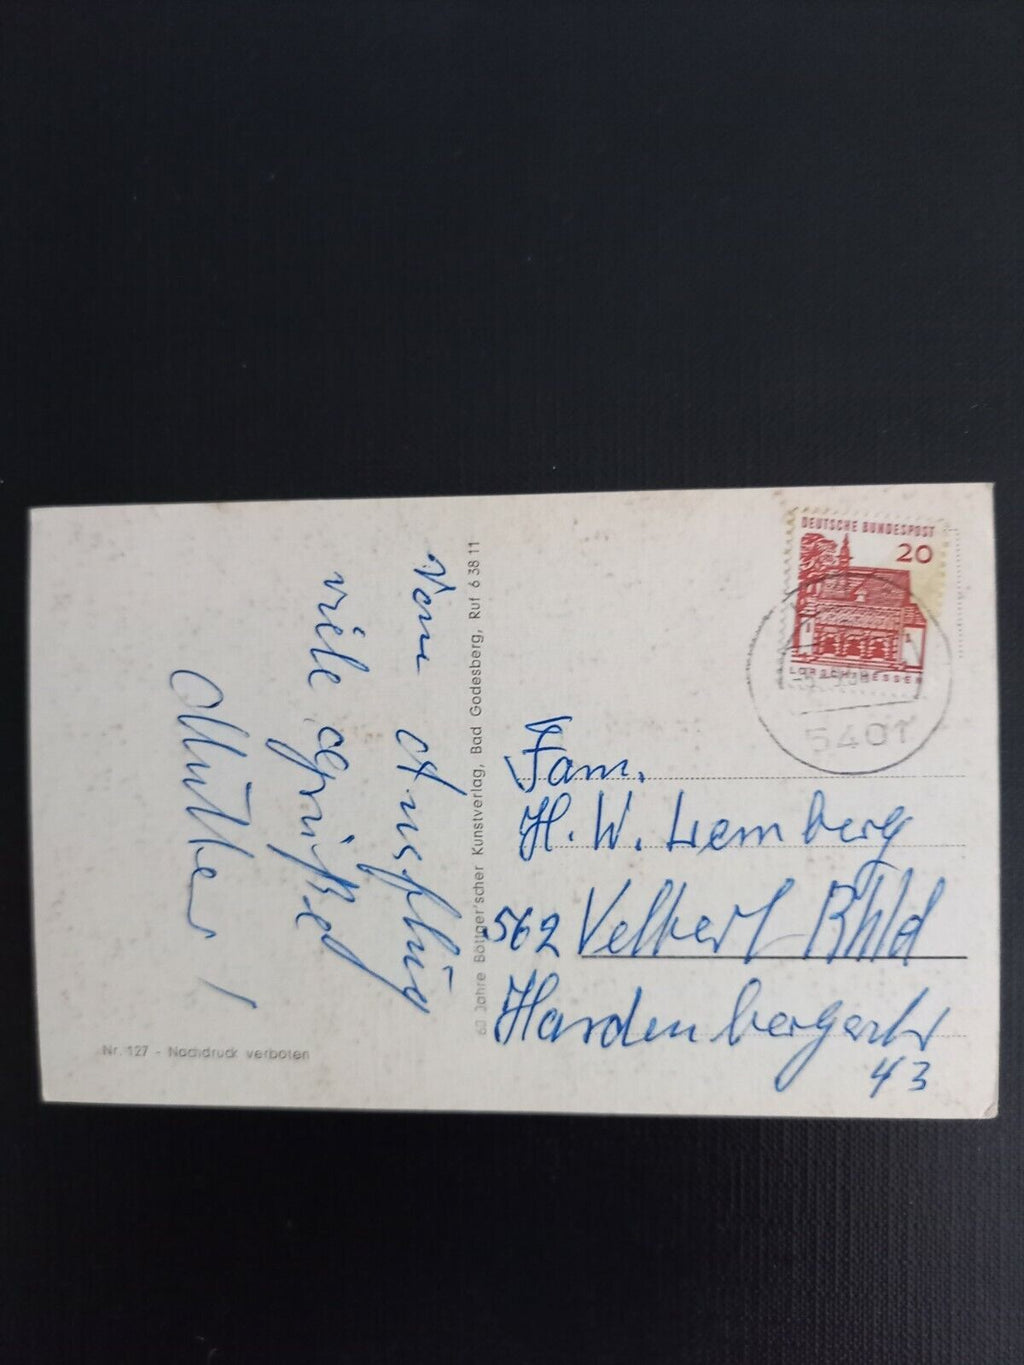 Vom Ausflug
viele Grüße
Mutter !
Nr. 127 - Nachdruck verboten
60 Jahre Böttger'scher Kunstverlag, Bad Godesberg, Ruf 6 38 11
DEUTSCHE BUNDESPOST
20
LORSCH/HESSEN
5401
Fam.
H. W. Lemberg
562 Velbert Rhld
Hardenbergerstr
43